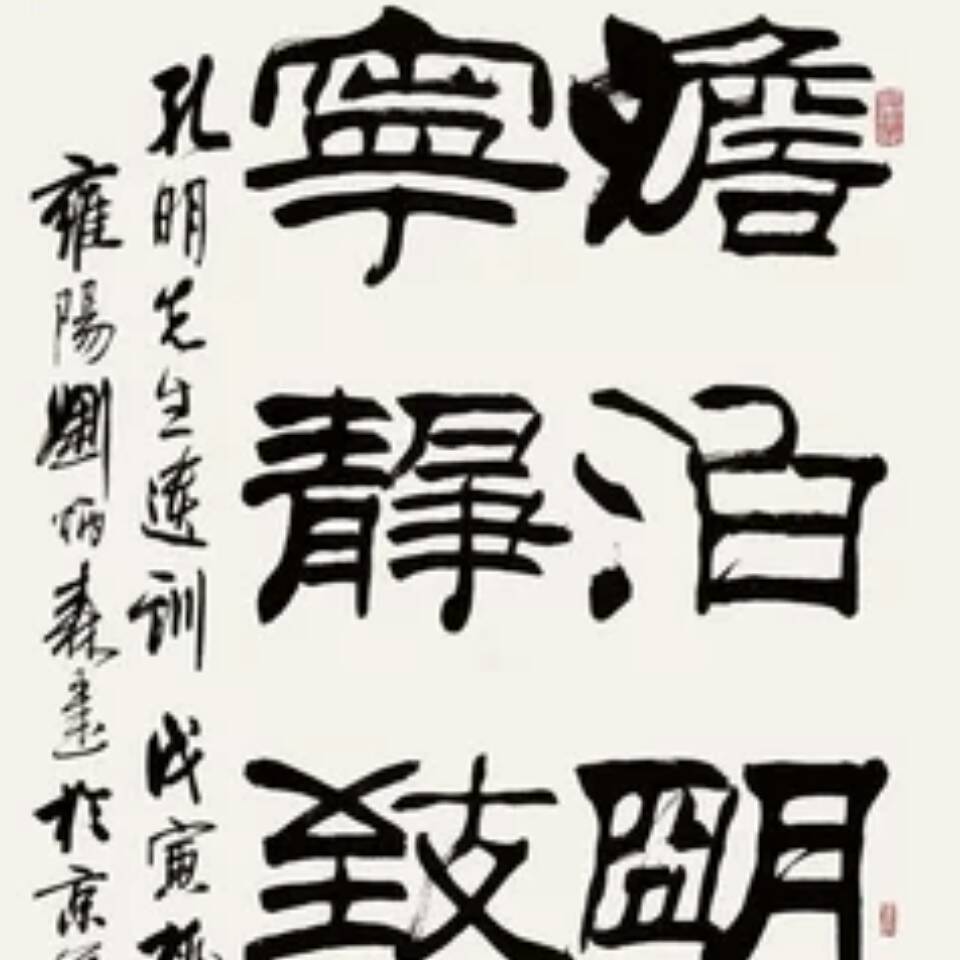 澹泊明
寧靜致
孔明先生遺訓 戊寅
雍陽劉炳森於京